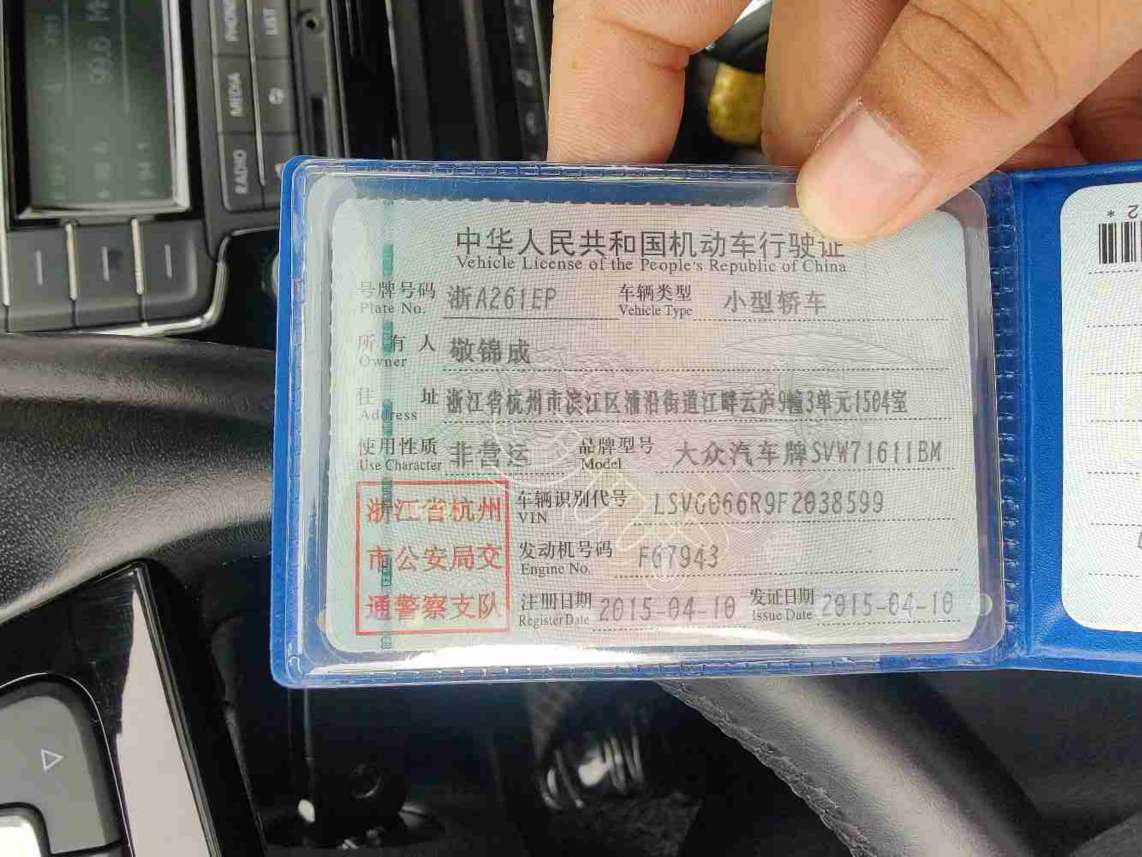 中华人民共和国机动车行驶证
Vehicle License of the People's Republic of China
号牌号码 浙A261EP 车辆类型 小型轿车
Plate No. Vehicle Type
所有人 敬锦成
Owner
住址 浙江省杭州市滨江区浦沿街道江畔云庐9幢3单元1504室
Address
使用性质 非营运 品牌型号 大众汽车牌SVW71611BM
Use Character Model
浙江省杭州
市公安局交
通警察支队
车辆识别代号 LSVG066R9F2038599
VIN
发动机号码 F67943
Engine No.
注册日期 2015-04-10 发证日期 2015-04-10
Register Date Issue Date
PHONE
LIST
MEDIA
RADIO